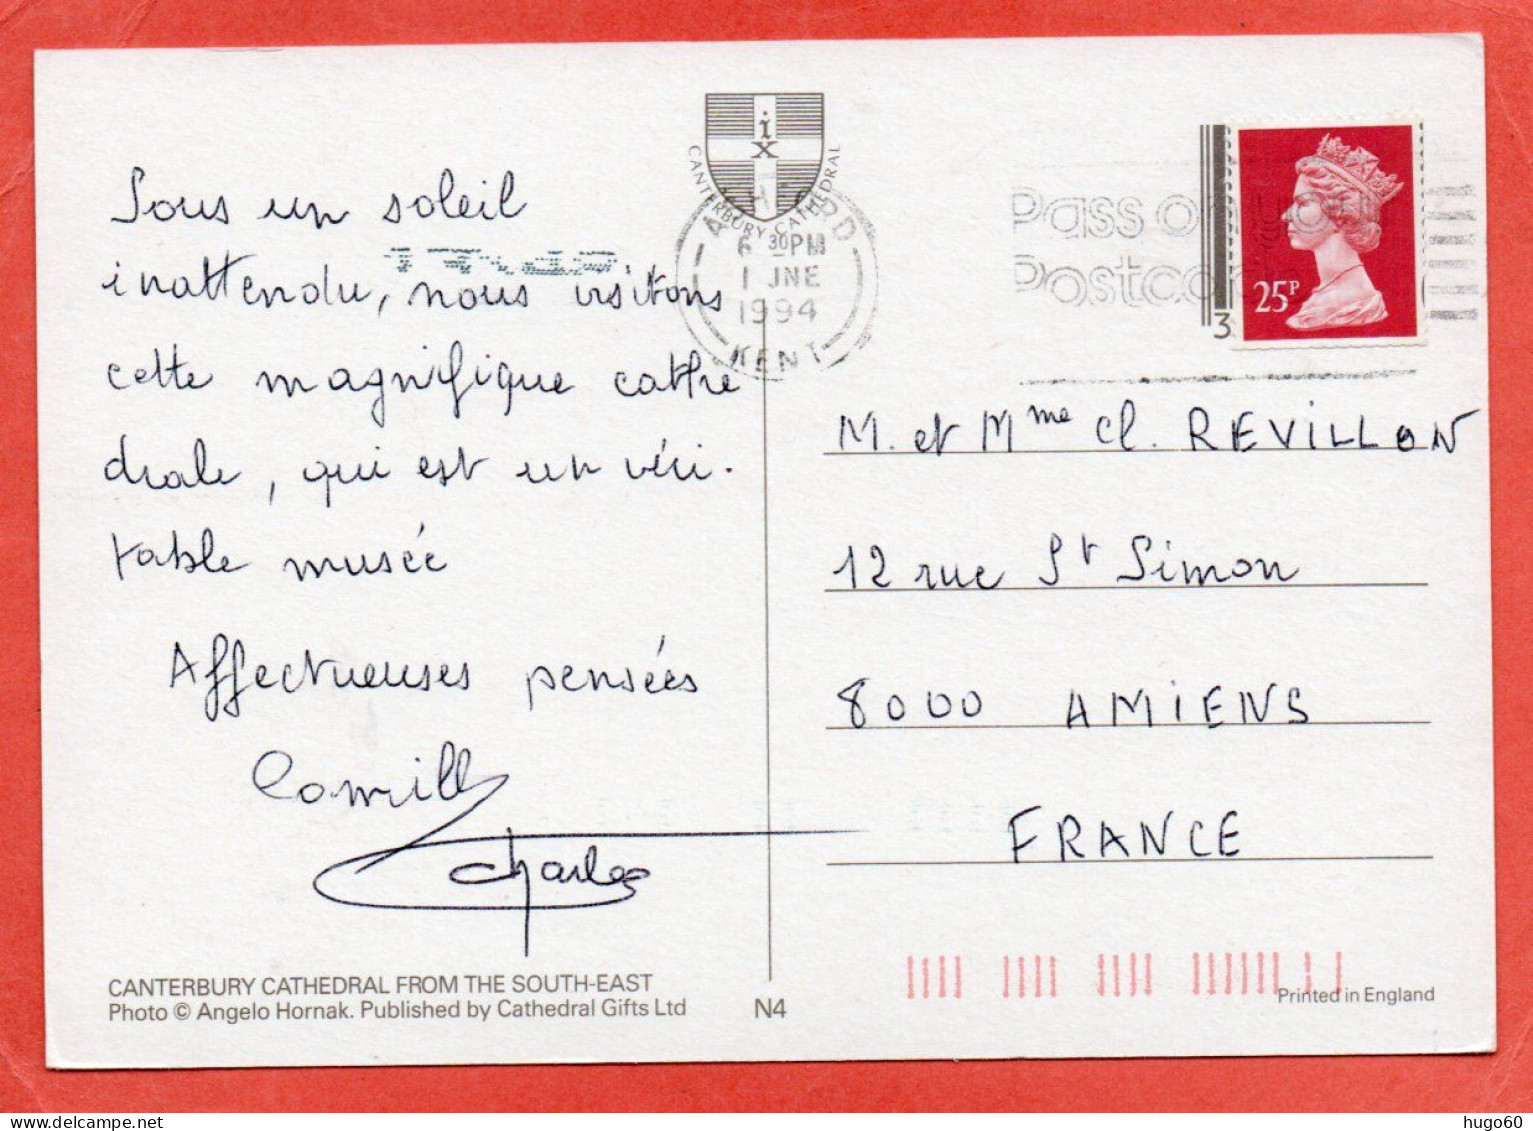 Sous un soleil
inattendu, nous visitons
cette magnifique cathé
drale, qui est un véri-
table musée
Affectueuses pensées
Camille
Charles
CANTERBURY CATHEDRAL FROM THE SOUTH-EAST
Photo © Angelo Hornak. Published by Cathedral Gifts Ltd
N4
ix
CANTERBURY CATHEDRAL
ASHFORD
6 30PM
1 JNE
1994
KENT
Pass on your
Postcode
25P
3
M. et Mme Cl. REVILLON
12 rue St Simon
8000 AMIENS
FRANCE
Printed in England
hugo60